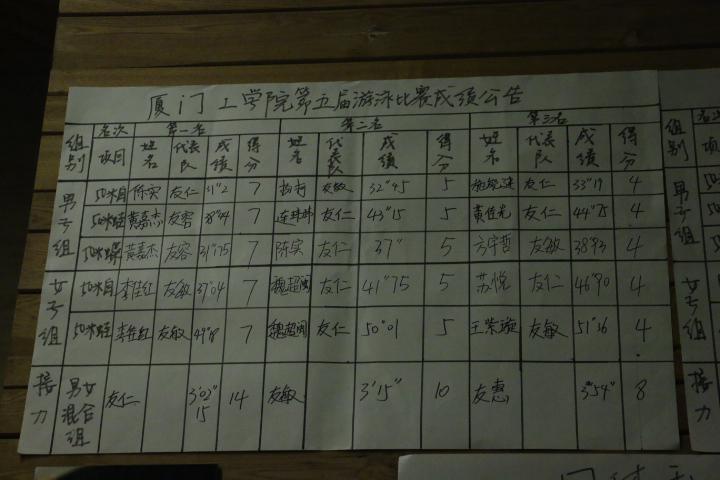 厦门工学院第五届游泳比赛成绩公告
组别 名次 第一名 第二名 第三名
项目 姓名 代表队 成绩 得分 姓名 代表队 成绩 得分 姓名 代表队 成绩 得分
男子组 50米自 陈实 友仁 31"2 7 友敏 32"95 5 友仁 33"19 4
50米蛙 黄嘉杰 友容 7 友仁 43"15 5 黄佳光 友仁 44"75 4
50米 黄嘉杰 友容 31"75 7 陈实 友仁 37" 5 方宇哲 友敏 38"93 4
女子组 50米自 李佳红 友敏 37"04 7 魏超闽 友仁 41"75 5 苏悦 友仁 46"90 4
50米蛙 李佳红 友敏 7 魏超闽 友仁 50"01 5 王荣璇 友敏 51"36 4
接力 男女混合组 友仁 3'03"15 14 友敏 3'15" 10 友惠 3'54" 8
组别
男子组
女子组
接力